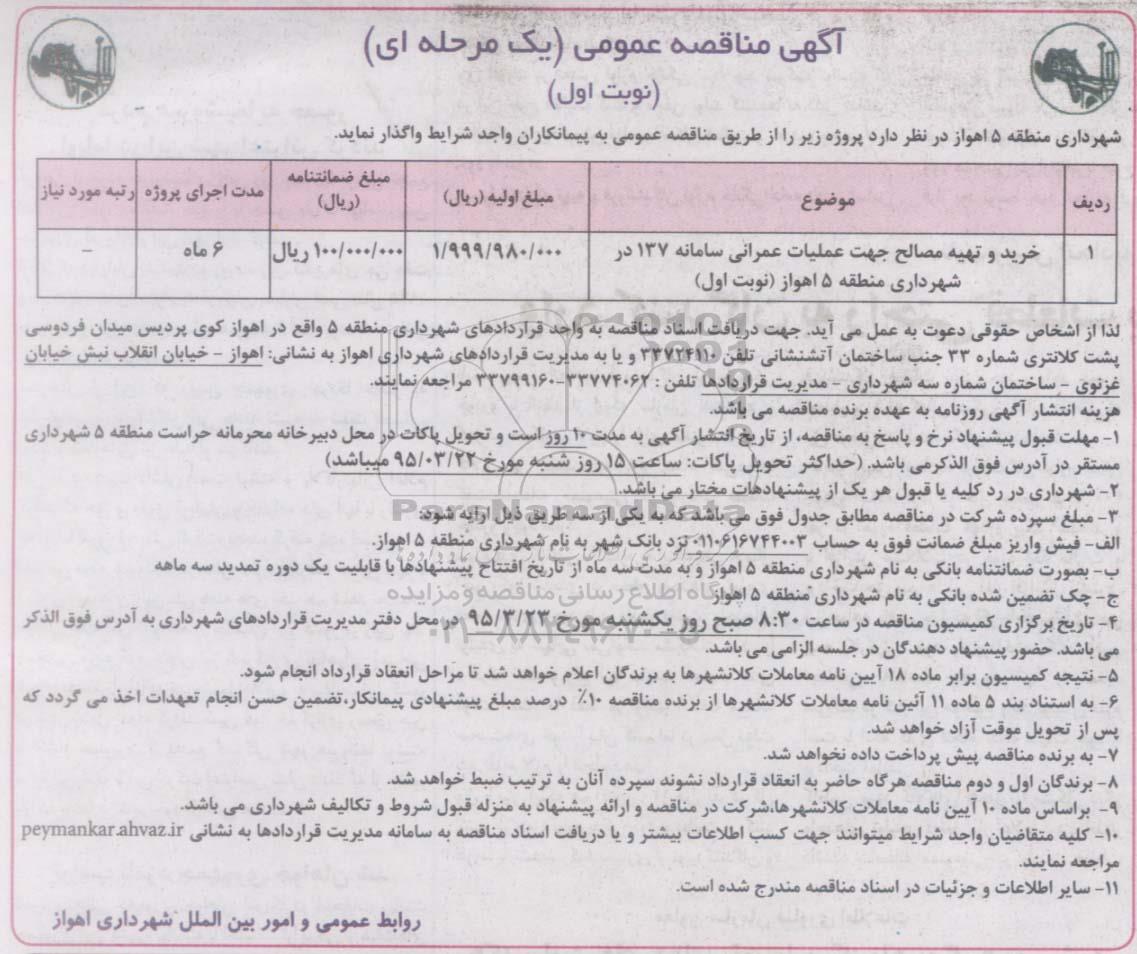 آگهی مناقصه عمومی (یک مرحله ای)
(نوبت اول)
شهرداری منطقه ۵ اهواز در نظر دارد پروژه زیر را از طریق مناقصه عمومی به پیمانکاران واجد شرایط واگذار نماید.
ردیف موضوع مبلغ اولیه (ریال) مبلغ ضمانتنامه (ریال) مدت اجرای پروژه رتبه مورد نیاز
۱ خرید و تهیه مصالح جهت عملیات عمرانی سامانه ۱۳۷ در ۱/۹۹۹/۹۸۰/۰۰۰ ۱۰۰/۰۰۰/۰۰۰ ریال ۶ ماه
شهرداری منطقه ۵ اهواز (نوبت اول)
لذا از اشخاص حقوقی دعوت به عمل می آید. جهت دریافت اسناد مناقصه به واحد قراردادهای شهرداری منطقه ۵ واقع در اهواز کوی پردیس میدان فردوسی
پشت کلانتری شماره ۳۳ جنب ساختمان آتشنشانی تلفن ۳۳۷۲۴۱۱۰ و یا به مدیریت قراردادهای شهرداری اهواز به نشانی: اهواز - خیابان انقلاب نبش خیابان
غزنوی - ساختمان شماره سه شهرداری - مدیریت قراردادها تلفن : ۳۳۷۷۴۰۶۲-۳۳۷۹۹۱۶۰ مراجعه نمایند.
هزینه انتشار آگهی روزنامه به عهده برنده مناقصه می باشد.
۱- مهلت قبول پیشنهاد نرخ و پاسخ به مناقصه، از تاریخ انتشار آگهی به مدت ۱۰ روز است و تحویل پاکات در محل دبیرخانه محرمانه حراست منطقه ۵ شهرداری
مستقر در آدرس فوق الذکرمی باشد. (حداکثر تحویل پاکات: ساعت ۱۵ روز شنبه مورخ ۹۵/۰۳/۲۲ میباشد)
۲- شهرداری در رد کلیه یا قبول هر یک از پیشنهادهات مختار می باشد.
۳- مبلغ سپرده شرکت در مناقصه مطابق جدول فوق می باشد که به یکی از سه طریق ذیل ارایه شود:
الف- فیش واریز مبلغ ضمانت فوق به حساب ۰۱۱۰۶۱۶۷۴۴۰۰۳ نزد بانک شهر به نام شهرداری منطقه ۵ اهواز.
ب- بصورت ضمانتنامه بانکی به نام شهرداری منطقه ۵ اهواز و به مدت سه ماه از تاریخ افتتاح پیشنهادها با قابلیت یک دوره تمدید سه ماهه
ج- چک تضمین شده بانکی به نام شهرداری منطقه ۵ اهواز
۴- تاریخ برگزاری کمیسیون مناقصه در ساعت ۸:۳۰ صبح روز یکشنبه مورخ ۹۵/۳/۲۳ در محل دفتر مدیریت قراردادهای شهرداری به آدرس فوق الذکر
می باشد. حضور پیشنهاد دهندگان در جلسه الزامی می باشد.
۵- نتیجه کمیسیون برابر ماده ۱۸ آیین نامه معاملات کلانشهرها به برندگان اعلام خواهد شد تا مراحل انعقاد قرارداد انجام شود.
۶- به استناد بند ۵ ماده ۱۱ آئین نامه معاملات کلانشهرها از برنده مناقصه ۱۰٪ درصد مبلغ پیشنهادی پیمانکار،تضمین حسن انجام تعهدات اخذ می گردد که
پس از تحویل موقت آزاد خواهد شد.
۷- به برنده مناقصه پیش پرداخت داده نخواهد شد.
۸- برندگان اول و دوم مناقصه هرگاه حاضر به انعقاد قرارداد نشوند سپرده آنان به ترتیب ضبط خواهد شد.
۹- براساس ماده ۱۰ آیین نامه معاملات کلانشهرها،شرکت در مناقصه و ارائه پیشنهاد به منزله قبول شروط و تکالیف شهرداری می باشد.
۱۰- کلیه متقاضیان واجد شرایط میتوانند جهت کسب اطلاعات بیشتر و یا دریافت اسناد مناقصه به سامانه مدیریت قراردادها به نشانی peymankar.ahvaz.ir
مراجعه نمایند
۱۱- سایر اطلاعات و جزئیات در اسناد مناقصه مندرج شده است.
روابط عمومی و امور بین الملل شهرداری اهواز
ParsNamadData
پایگاه اطلاع رسانی مناقصه و مزایده